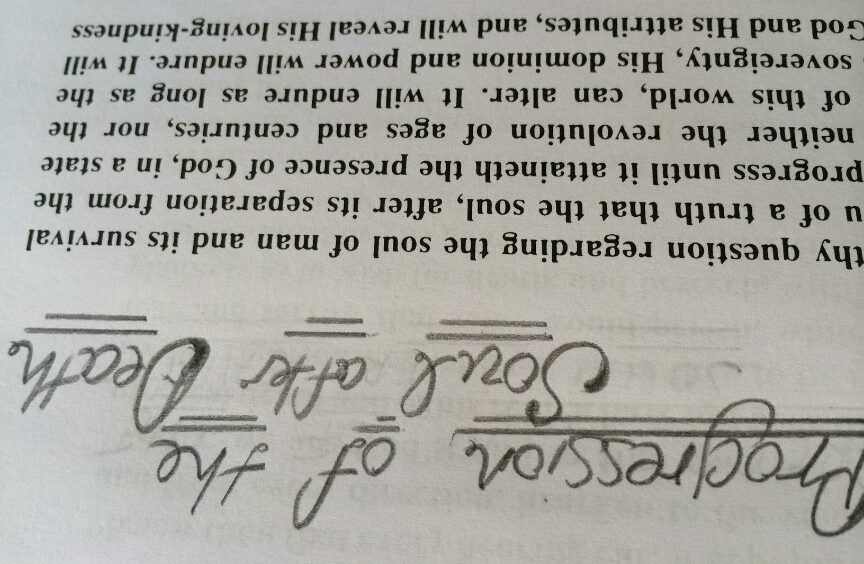 Progression of the
Soul after Death
thy question regarding the soul of man and its survival
u of a truth that the soul, after its separation from the
progress until it attaineth the presence of God, in a state
neither the revolution of ages and centuries, nor the
of this world, can alter. It will endure as long as the
sovereignty, His dominion and power will endure. It will
God and His attributes, and will reveal His loving-kindness